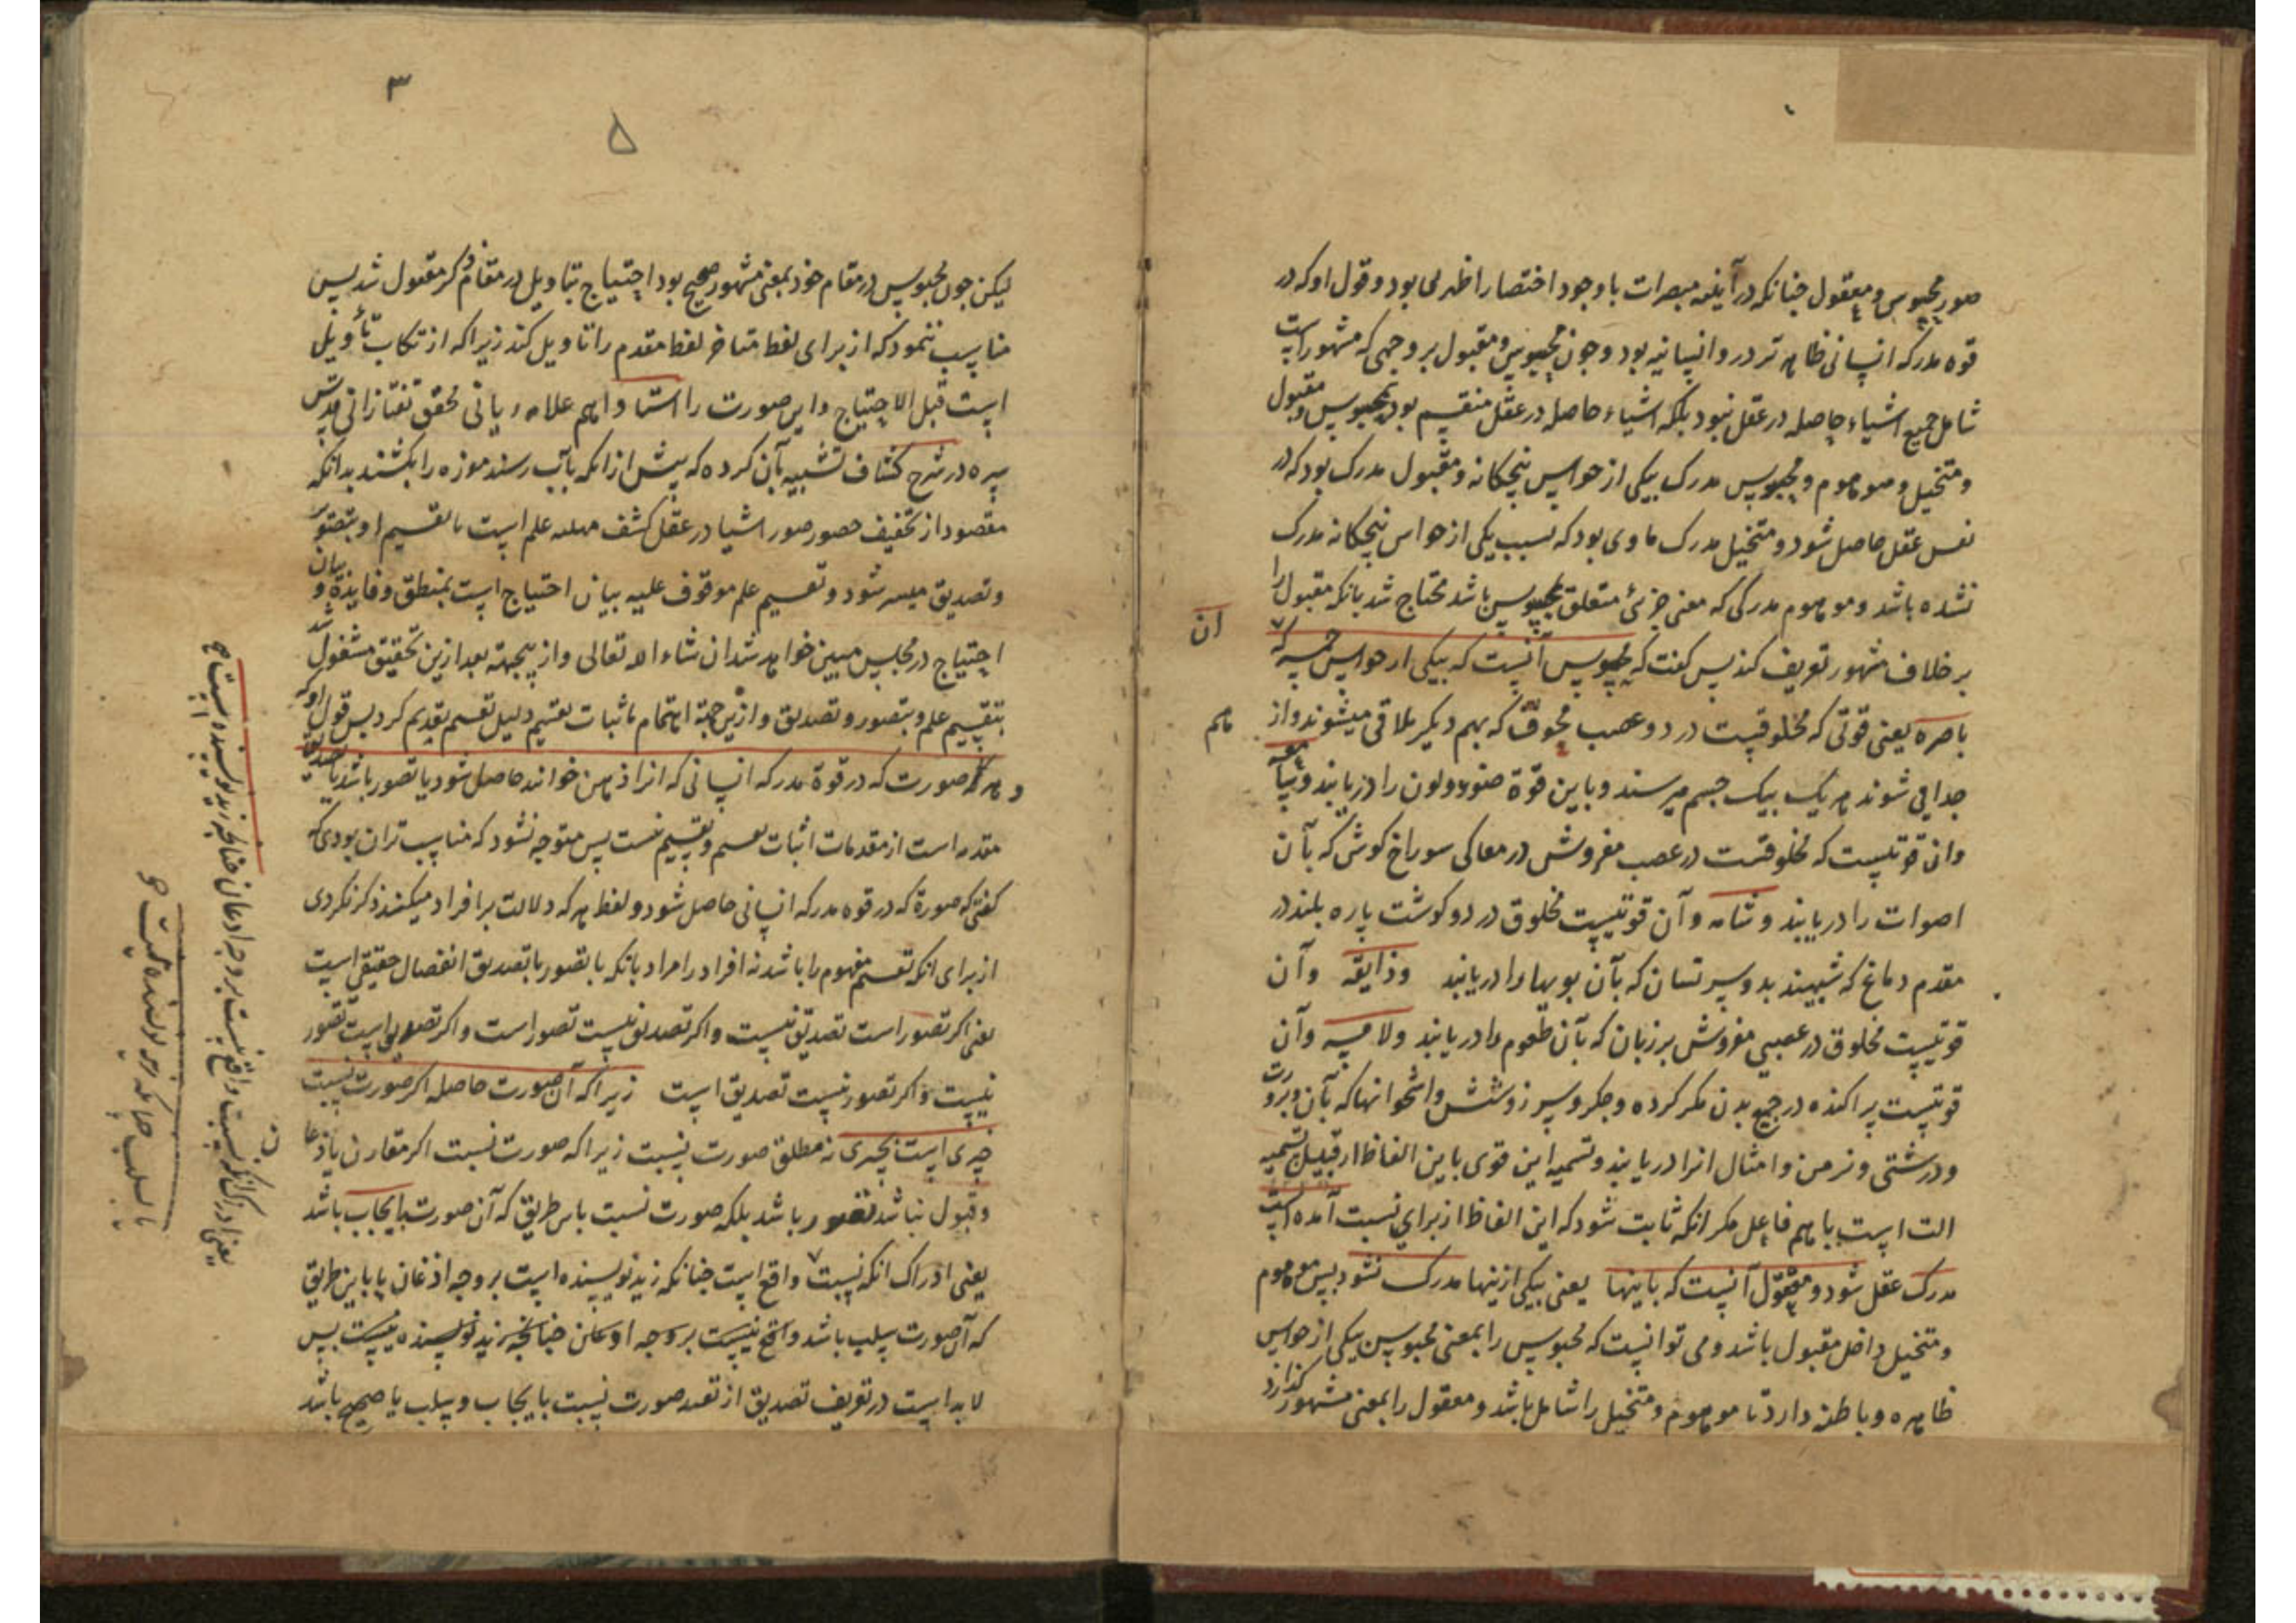 صور محسوس و معقول چنانکه در آینه مبصرات با وجود اختصار اظهر می بود و قول او که در
قوه مدرکه انسانی ظاهرتر در و انسانیه بود و چون محسوس و مقبول بر وجهی که مشهور است
شامل جمیع اشیاء حاصله در عقل نبود بلکه اشیاء حاصله در عقل منقسم بود بمحسوس و مقبول
و متخیل و موهوم و محسوس مدرک بیکی از حواس پنجکانه و مقبول مدرک بود که در
نفس عقل حاصل شود و متخیل مدرک ماوی بود که بسبب یکی از حواس پنجکانه مدرک
نشده باشد و موهوم مدرکی که معنی جزئی متعلق بمحسوس باشد محتاج شد بانکه مقبول را
بر خلاف مشهور تعریف کند پس کفت که محسوس آنست که بیکی از حواس خمسه که
ان
باصره یعنی قوتی که مخلوقیست در دو عصب مجوف که بهم دیکر ملاقی میشوند و از
هم
جدا می شوند هر یک بیک چشم میرسند و باین قوة ضوء و لون را دریابند و سامعه
وان قوتیست که مخلوقست در عصب مفروش در مغاکی سوراخ کوش که بآن
اصوات را دریابند و شامه و آن قوتیست مخلوق در دو کوشت پاره بلند در
مقدم دماغ که شبیهند بدو سر پستان که بآن بویها را دریابند و ذایقه و آن
قوتیست مخلوق در عصبی مفروش بر زبان که بآن طعوم را دریابند و لامسه و آن
قوتیست پراکنده در جمیع بدن مکر کرده و جکر و سپرز و شش و استخوانها که بآن برودت
و درشتی و نرمی و امثال انرا دریابند و تسمیه این قوی باین الفاظ از قبیل تسمیه
الت است باسم فاعل مکر انکه ثابت شود که این الفاظ از برای نسبت آمده است
مدرک عقل شود و معقول آنست که باینها یعنی بیکی ازینها مدرک نشود پس موهوم
و متخیل داخل مقبول باشد و می توانست که محسوس را بمعنی محسوس بیکی از حواس
ظاهره و باطنه دارد تا موهوم و متخیل را شامل باشد و معقول را بمعنی مشهور کذارد
۳
۵
لیکن چون محسوس در مقام خود بمعنی مشهور صحیح بود احتیاج بتاویل در مقام ذکر مقبول شد پس
مناسب ننمود که از برای لفظ متاخر لفظ مقدم را تاویل کند زیرا که ارتکاب تأویل
است قبل الاحتیاج و این صورت را استاد اهم علامه ربانی محقق تفتازانی قدس
سره در شرح کشاف تشبیه بآن کرده که پیش از انکه بآب رسند موزه را بکشند بدانکه
مقصود از تحقیق حصور صور اشیا در عقل کشف مسله علم است تا تقسیم او بتصور
و تصدیق میسر شود و تقسیم علم موقوف علیه بیان احتیاج است بمنطق و فایده و بیان
احتیاج در مجلس مبین خواهد شد ان شاء الله تعالی و از ینجهته بعد ازین تحقیق مشغول شد
بتقسیم علم و بتصور و تصدیق و ازین جهة اهتمام باثبات تقسیم دلیل تقسیم تقدیم کرد پس قول او که
و هر صورت که در قوة مدرکه انسانی که انرا ذهن خوانند حاصل شود یا تصور باشد یا تصدیق
مقدمه است از مقدمات اثبات تقسیم و تقسیم نیست پس متوجه نشود که مناسب تر ان بودی که
کفتی که صورة که در قوه مدرکه انسانی حاصل شود و لفظ هر که دلالت بر افراد میکند ذکر نکردی
از برای انکه تقسیم مفهوم را باشد نه افراد را مراد بانکه یا تصور یا تصدیق انفصال حقیقی است
یعنی اکر تصور است تصدیق نیست و اکر تصدیق نیست تصور است و اکر تصدیق است تصور
نیست و اکر تصور نیست تصدیق است زیرا که آن صورت حاصله اکر صورت نسبت
چیزی است بچیزی نه مطلق صورت نسبت زیرا که صورت نسبت اکر مقارن باذعان
و قبول نباشد تصور باشد بلکه صورت نسبت باین طریق که آن صورت بایجاب باشد
یعنی ادراک انکه نسبت واقع است چنانکه زید نویسنده است بر وجه اذعان یا باین طریق
که آن صورت بسلب باشد واقع نیست بر وجه اذعان چنانچه زید نویسنده نیست پس
لابد است در تعریف تصدیق از تقید صورت نسبت بایجاب و سلب یا صحیح باشد
یعنی ادراک انکه نسبت واقع نیست بر وجه اذعان چنانچه زید نویسنده نیست صح
یا بسلب چنانکه زید نویسنده نیست صح